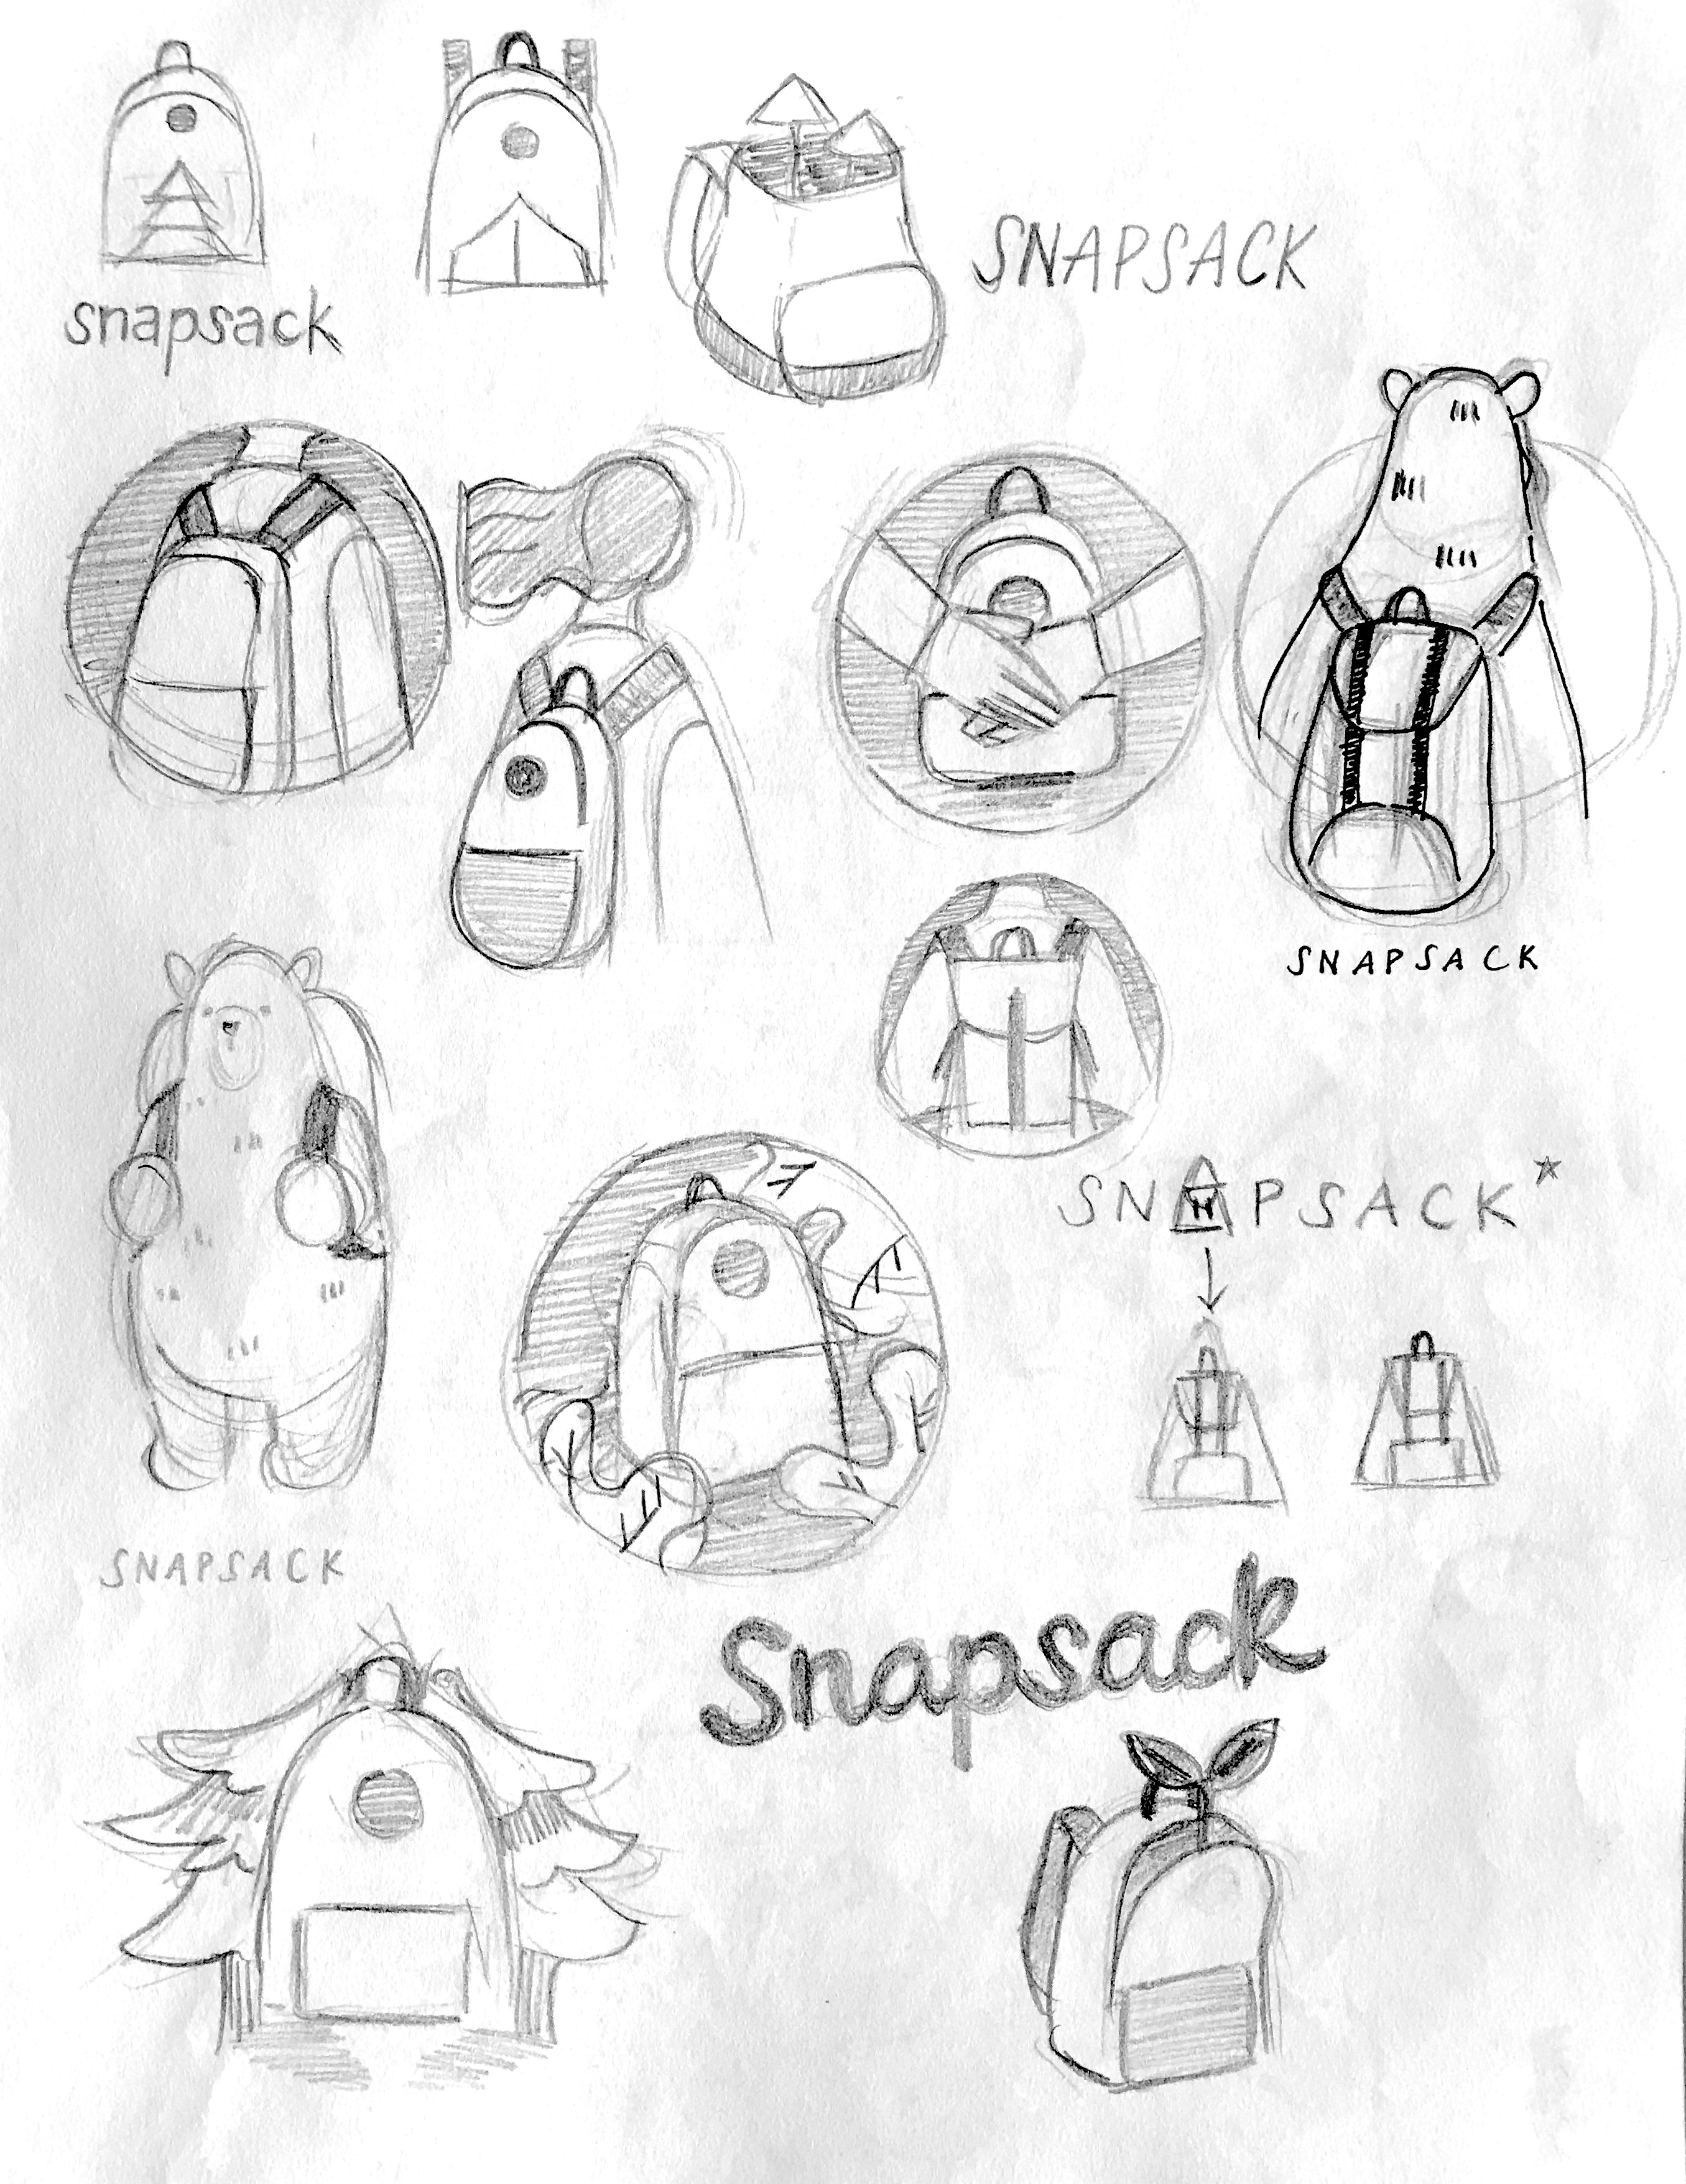 snapsack
SNAPSACK
SNAPSACK
SNAPSACK*
SNAPSACK
Snapsack